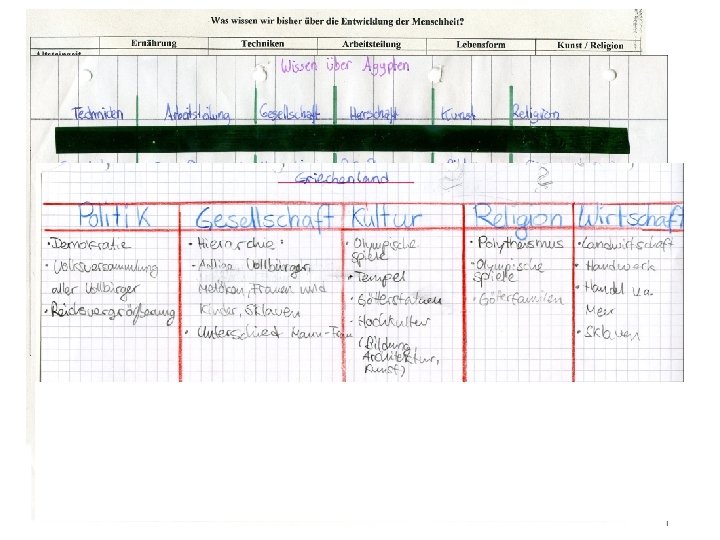 Was wissen wir bisher über die Entwicklung der Menschheit?
Ernährung Techniken Arbeitsteilung Lebensform Kunst / Religion
Wissen über Ägypten
Techniken Arbeitsteilung Gesellschaft Herrschaft Kunst Religion
Griechenland
Politik Gesellschaft Kultur Religion Wirtschaft
• Demokratie • Hierarchie: • Olympische • Polytheismus • Landwirtschaft
• Volksversammlung - Adlige, Vollbürger, spiele - Olympische • Handwerk
aller Vollbürger Metöken, Frauen und • Tempel spiele • Handel u.a.
• Reichsvergrößerung Kinder, Sklaven • Götterstatuen • Götterfamilien Meer
• Unterschied Mann-Frau - Hochkultur • Sklaven
(Bildung,
Architektur,
Kunst)